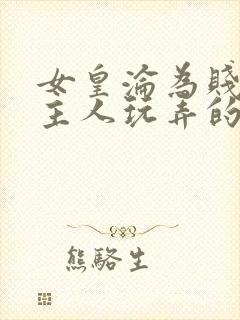 女皇淪為賤
主人玩弄的
熊駱生